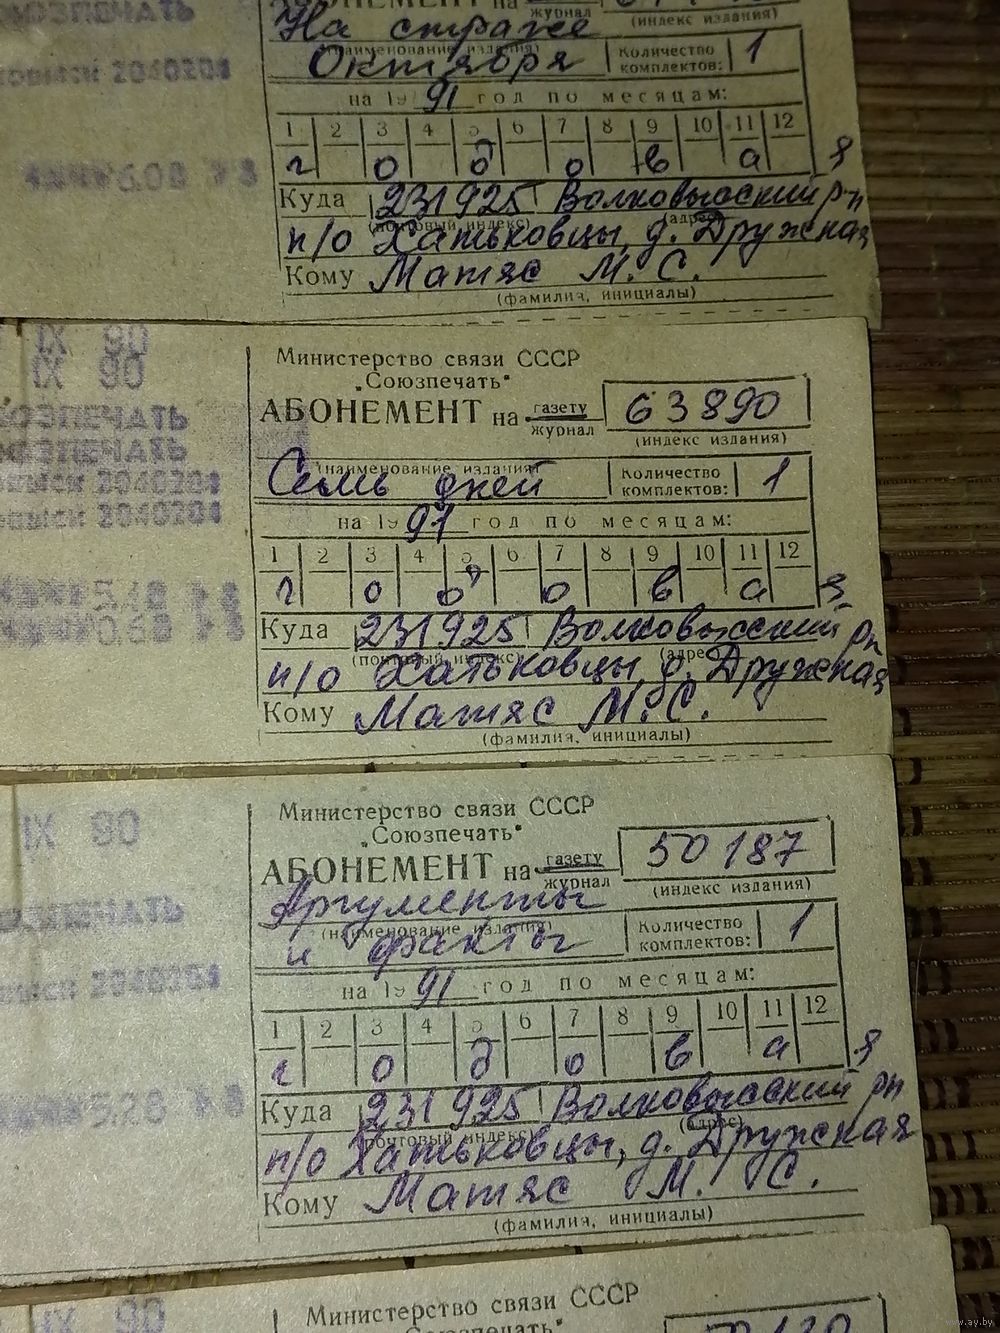 АБОНЕМЕНТ на журнал
(индекс издания)
СОЮЗПЕЧАТЬ
На страже
(наименование издания)
Октября
Количество комплектов: 1
2040204
на 1991 год по месяцам:
1 2 3 4 5 6 7 8 9 10 11 12
г о д о в а я
6.08
Куда 231925 Волковысский р-н
(почтовый индекс) (адрес)
п/о Хатьковцы, д. Дружная
Кому Матяс М. С.
(фамилия, инициалы)
IX 90
IX 90
Министерство связи СССР
„Союзпечать"
АБОНЕМЕНТ на газету журнал 63890
(индекс издания)
СОЮЗПЕЧАТЬ
СОЮЗПЕЧАТЬ
(наименование издания)
Семь дней
Количество комплектов: 1
2040204
2040204
на 1991 год по месяцам:
1 2 3 4 5 6 7 8 9 10 11 12
г о д о в а я
Куда 231925 Волковысский рн
(почтовый индекс) (адрес)
п/о Хатьковцы, д. Дружная
Кому Матяс М. С.
(фамилия, инициалы)
IX 90
Министерство связи СССР
„Союзпечать"
АБОНЕМЕНТ на газету журнал 50187
(индекс издания)
СОЮЗПЕЧАТЬ
Аргументы
(наименование издания)
и факты
Количество комплектов: 1
2040204
на 1991 год по месяцам:
1 2 3 4 5 6 7 8 9 10 11 12
г о д о в а я
Куда 231925 Волковысский рн
(почтовый индекс) (адрес)
п/о Хатьковцы, д. Дружная
Кому Матяс М. С.
(фамилия, инициалы)
IX 90
Министерство связи СССР
„Союзпечать"
www.ay.by